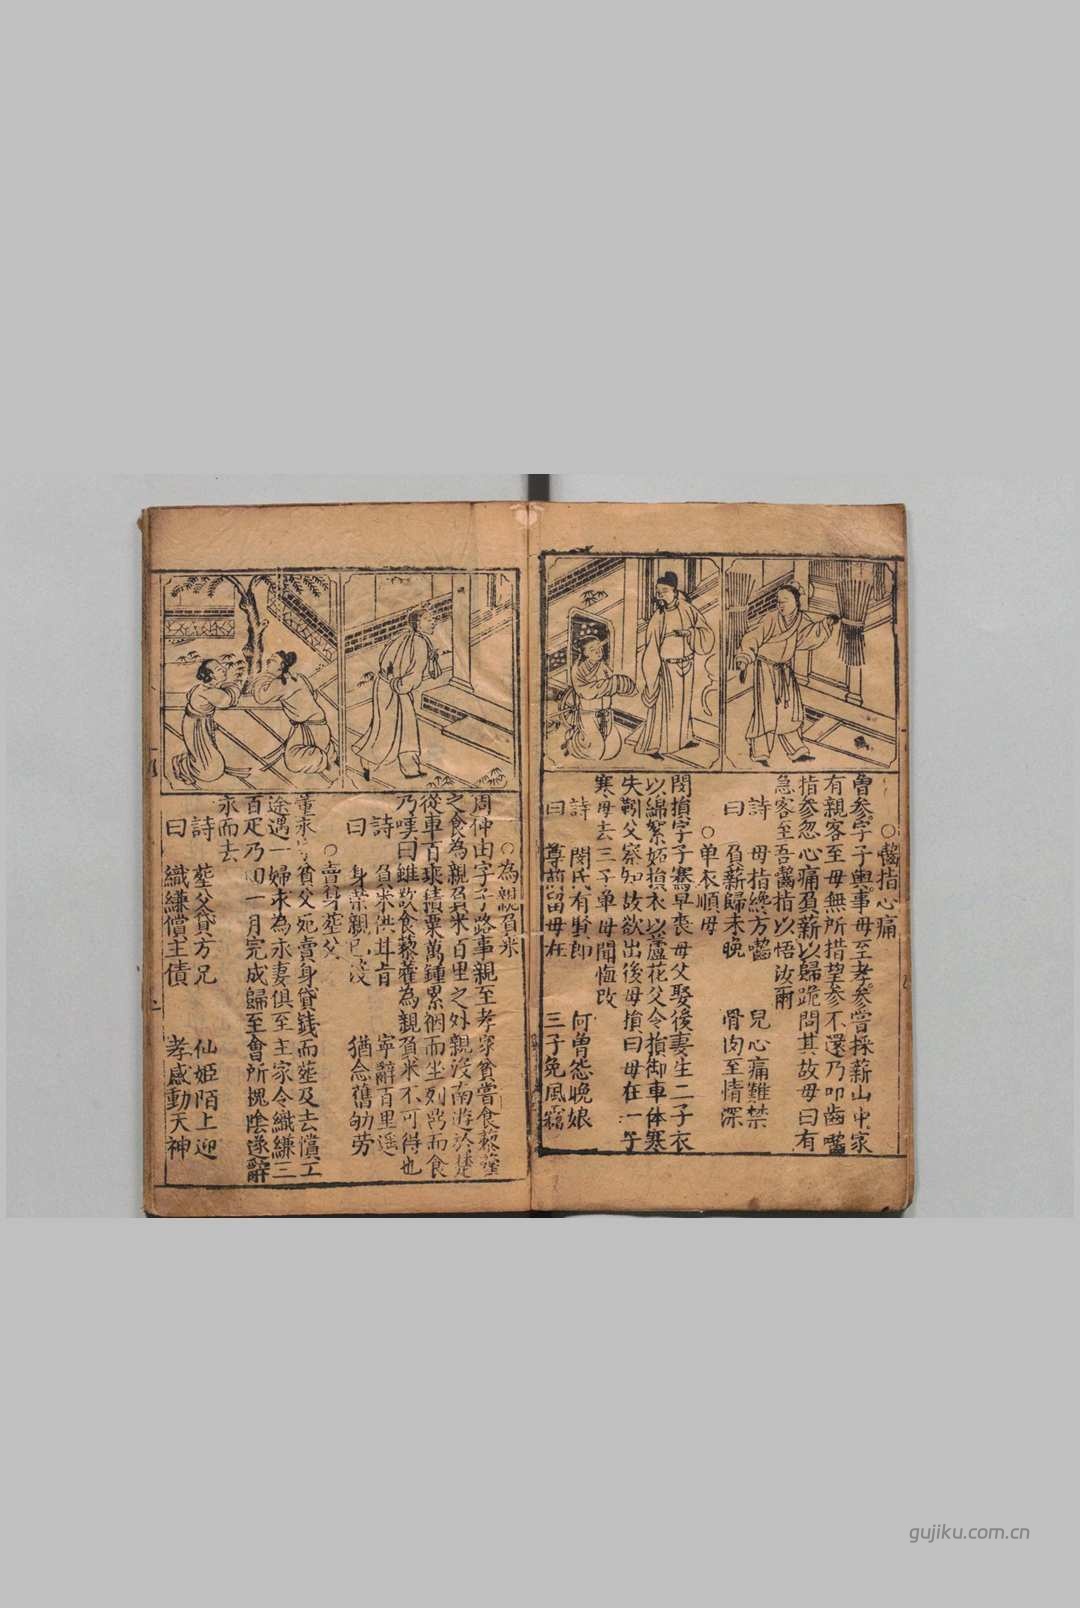 ○齧指心痛
曾參字子輿事母至孝參嘗採薪山中家
有親客至母無所措望參不還乃叩齒齧
指參忽心痛負薪以歸跪問其故母曰有
急客至吾齧指以悟汝爾
詩 母指纔方嚙 兒心痛難禁
曰 負薪歸未晚 骨肉至情深
○单衣順母
閔損字子騫早喪母父娶後妻生二子衣
以綿絮妬損衣以蘆花父令損御車体寒
失靷父察知故欲出後母損曰母在一子
寒母去三子单母聞悔改
詩 閔氏有賢郎 何曾怨晚娘
曰 尊前留母在 三子免風霜
○為親負米
周仲由字子路事親至孝家貧嘗食藜藿
之食為親負米百里之外親没南遊於楚
從車百乘積粟萬鍾累裀而坐列鼎而食
乃嘆曰雖欲食藜藿為親負米不可得也
詩 負米供甘旨 寧辭百里遥
曰 身榮親已没 猶念舊劬劳
○賣身塟父
董永 貧父死賣身貸錢而塟及去償工
途遇一婦求為永妻俱至主家令織縑三
百疋乃回一月完成歸至會所槐陰遂辭
永而去
詩 塟父貸方兄 仙姬陌上迎
曰 織縑償主債 孝感動天神
gujiku.com.cn